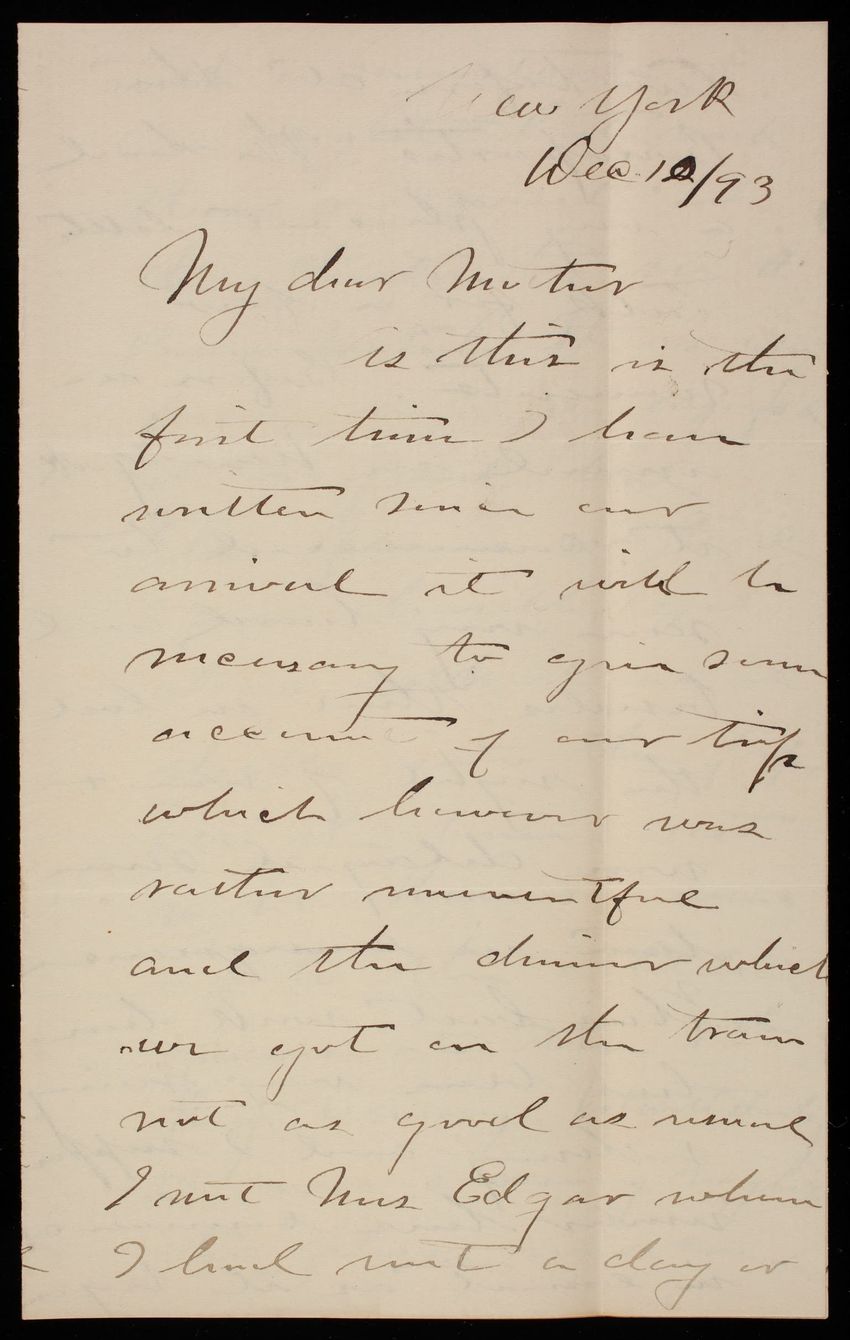 New York
Dec. 12/93
My dear Mother
is this is the
first time I have
written since our
arrival it will be
necessary to give some
account of our trip
which however was
rather uneventful
and the dinner which
we got on the train
not as good as usual
I met Mrs Edgar whom
I had met a day or